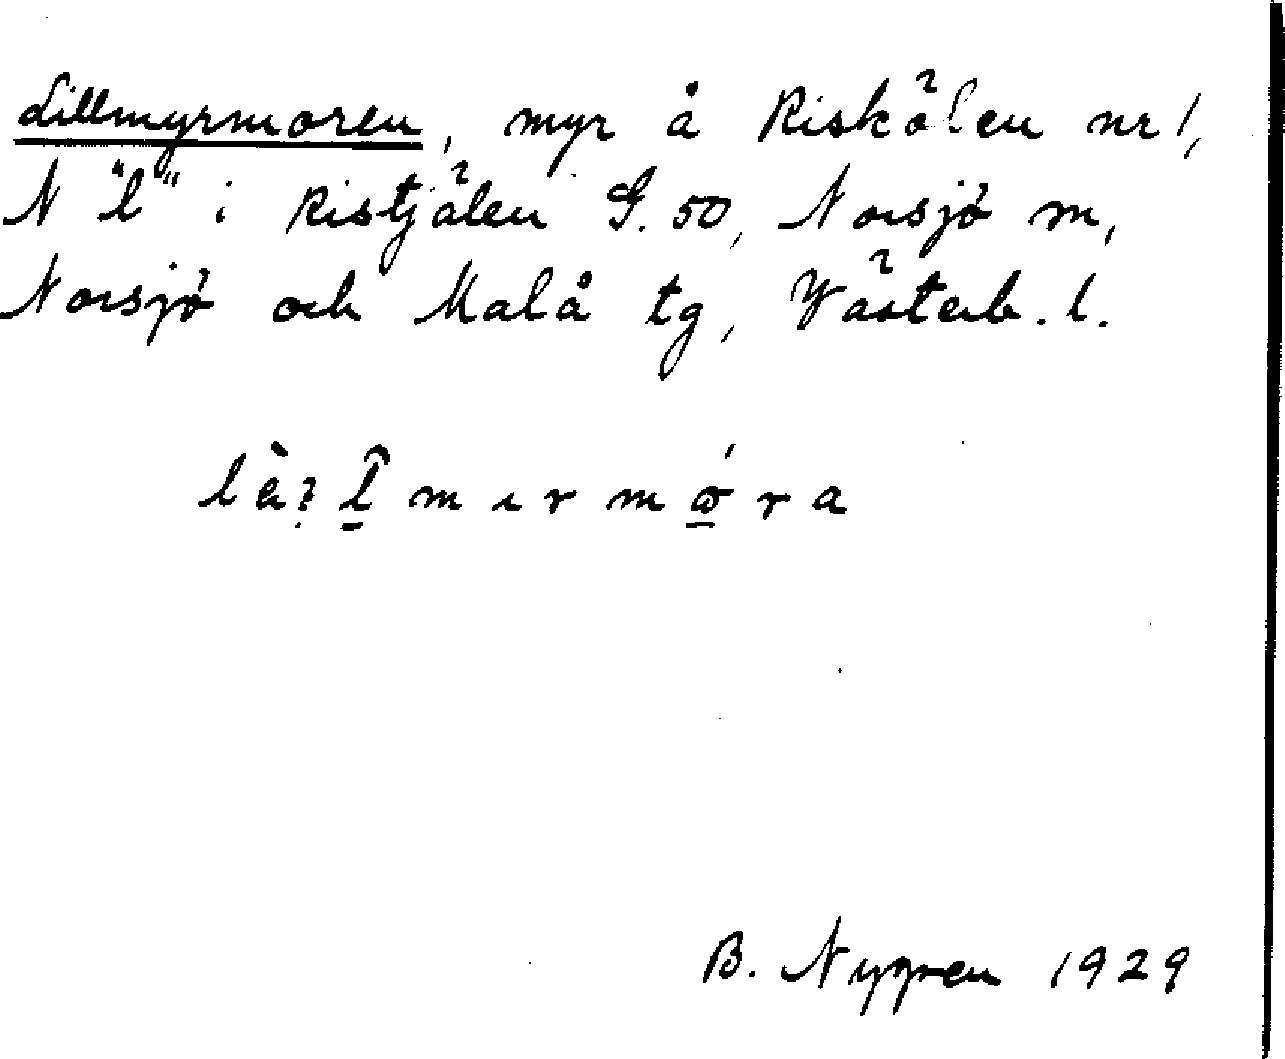 Lillmyrmoren, myr å Riskälen nr 1,
N "l" i Ristjälen G. 50, Norsjö m,
Norsjö och Malå tg, Västerb. l.
B. Nygren 1929